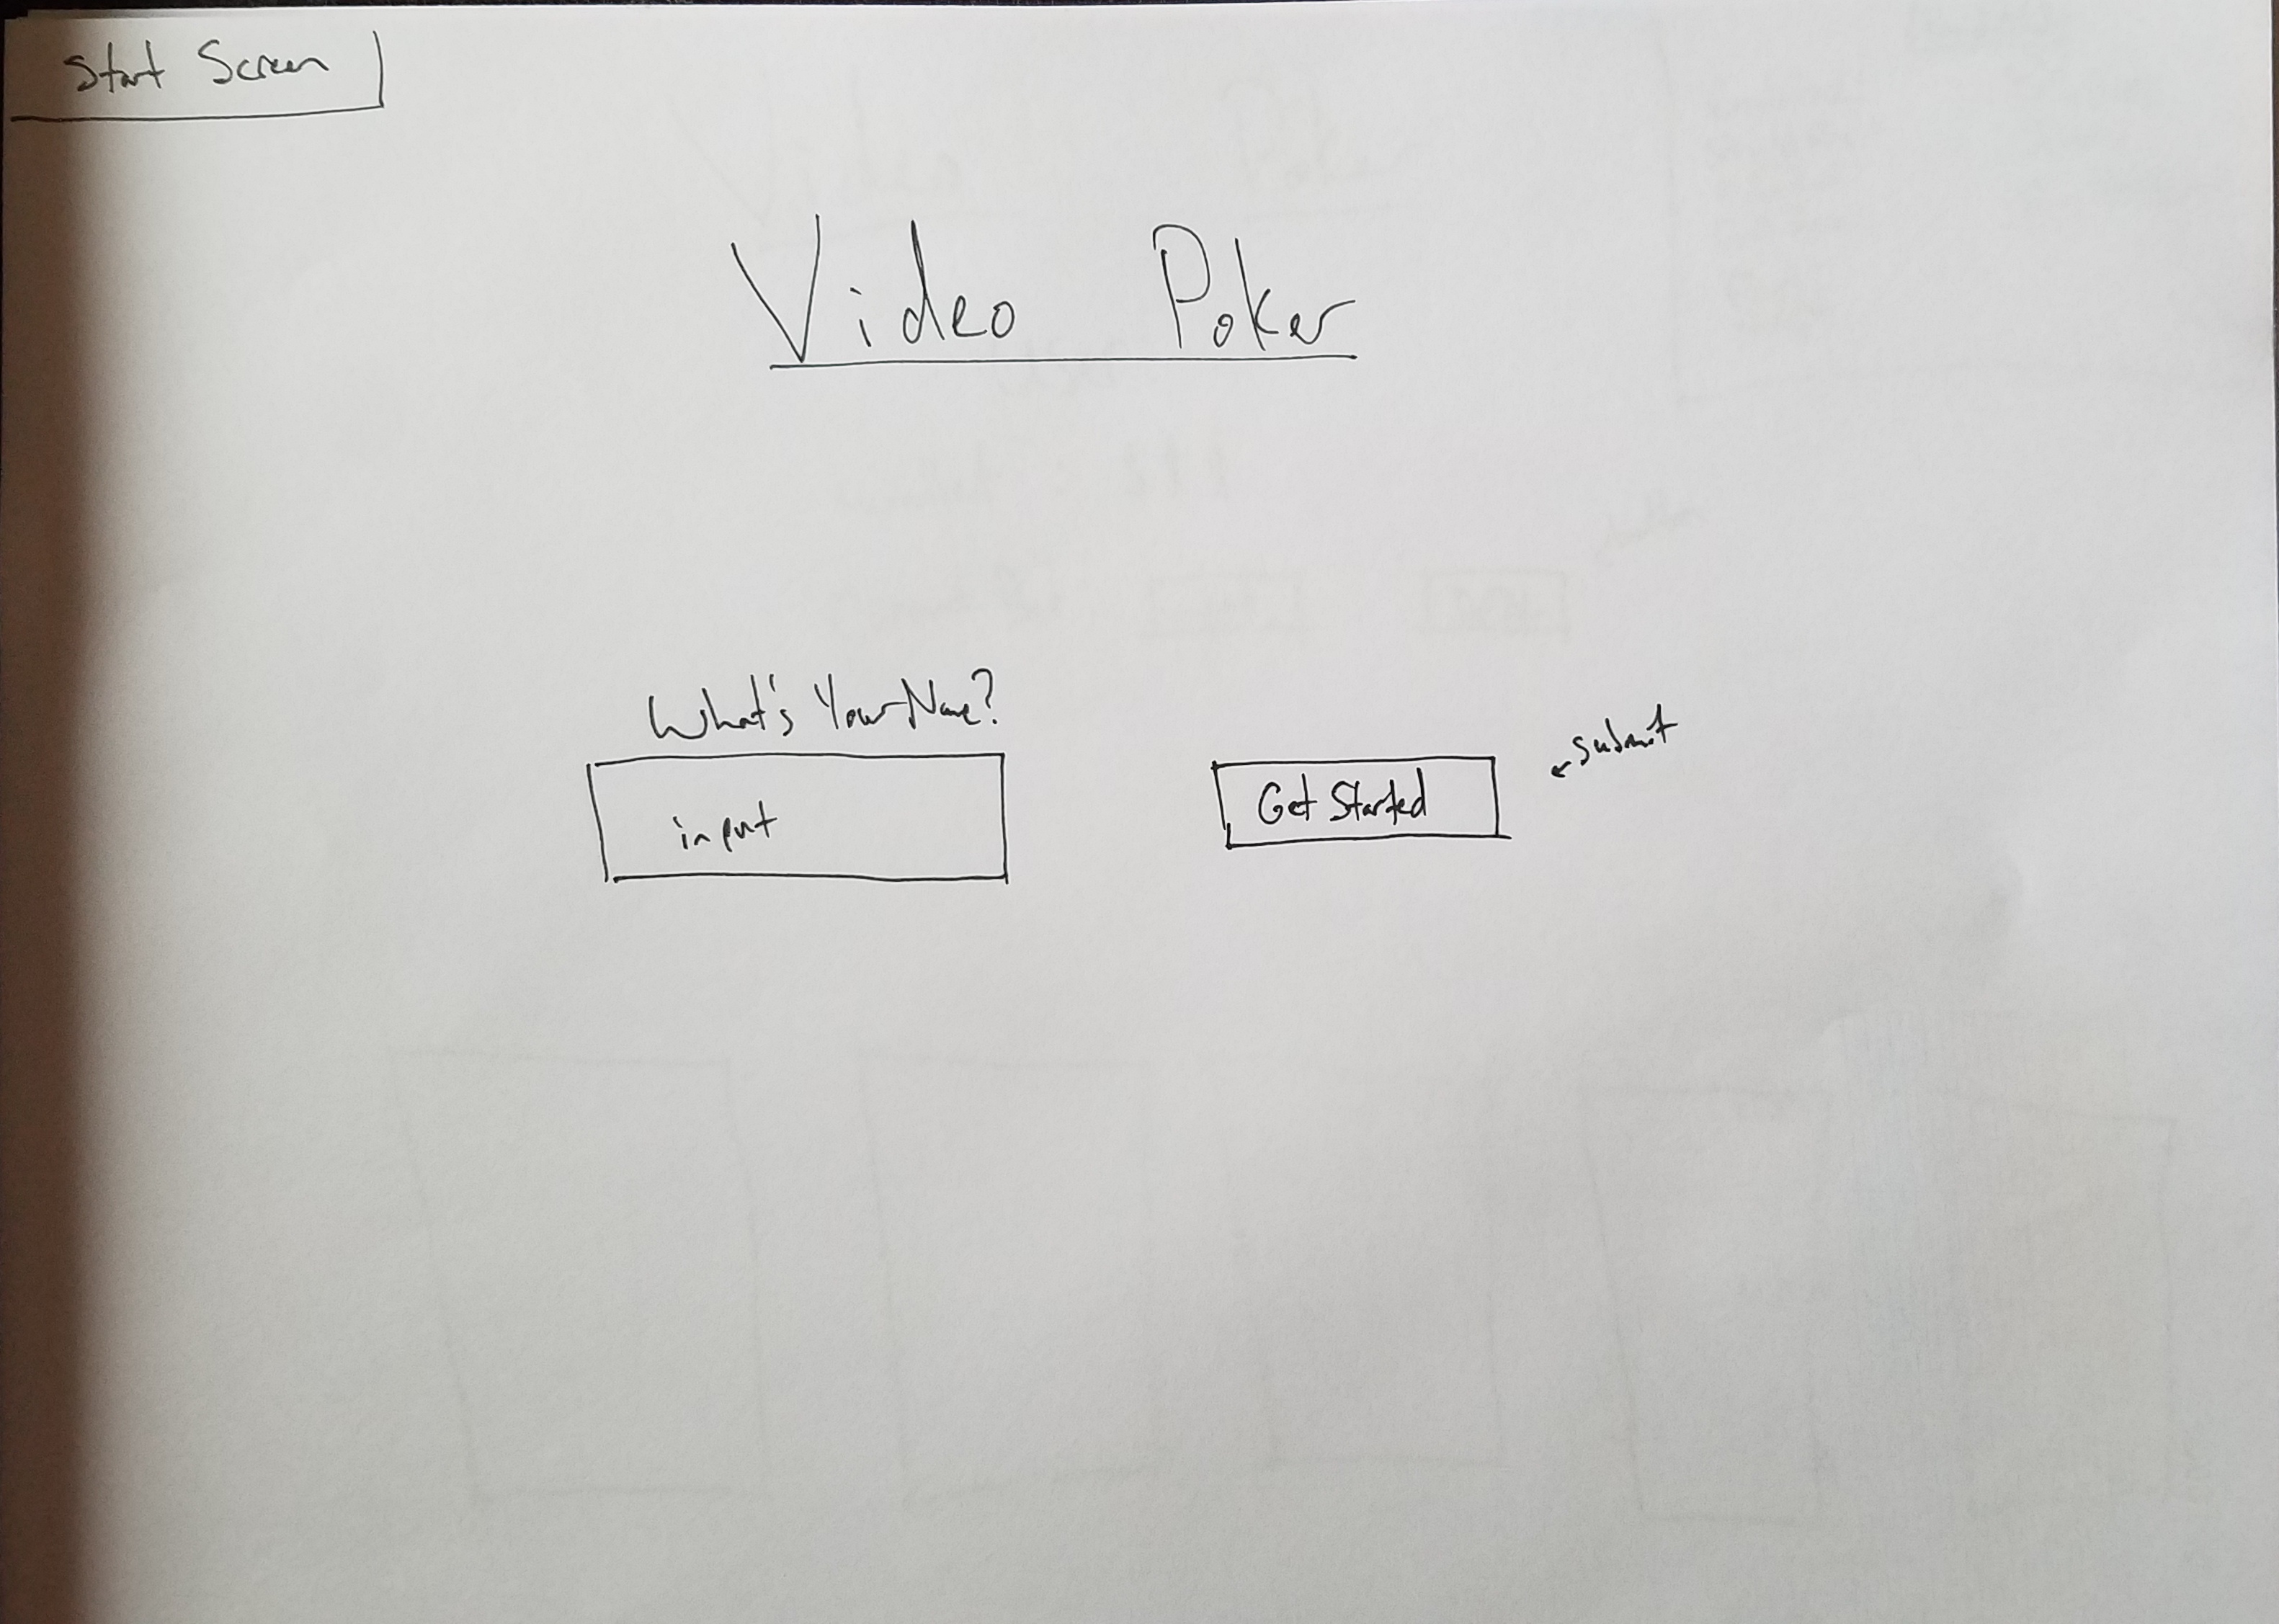 Start Screen
Video Poker
What's Your Name?
input
Get Started
submit